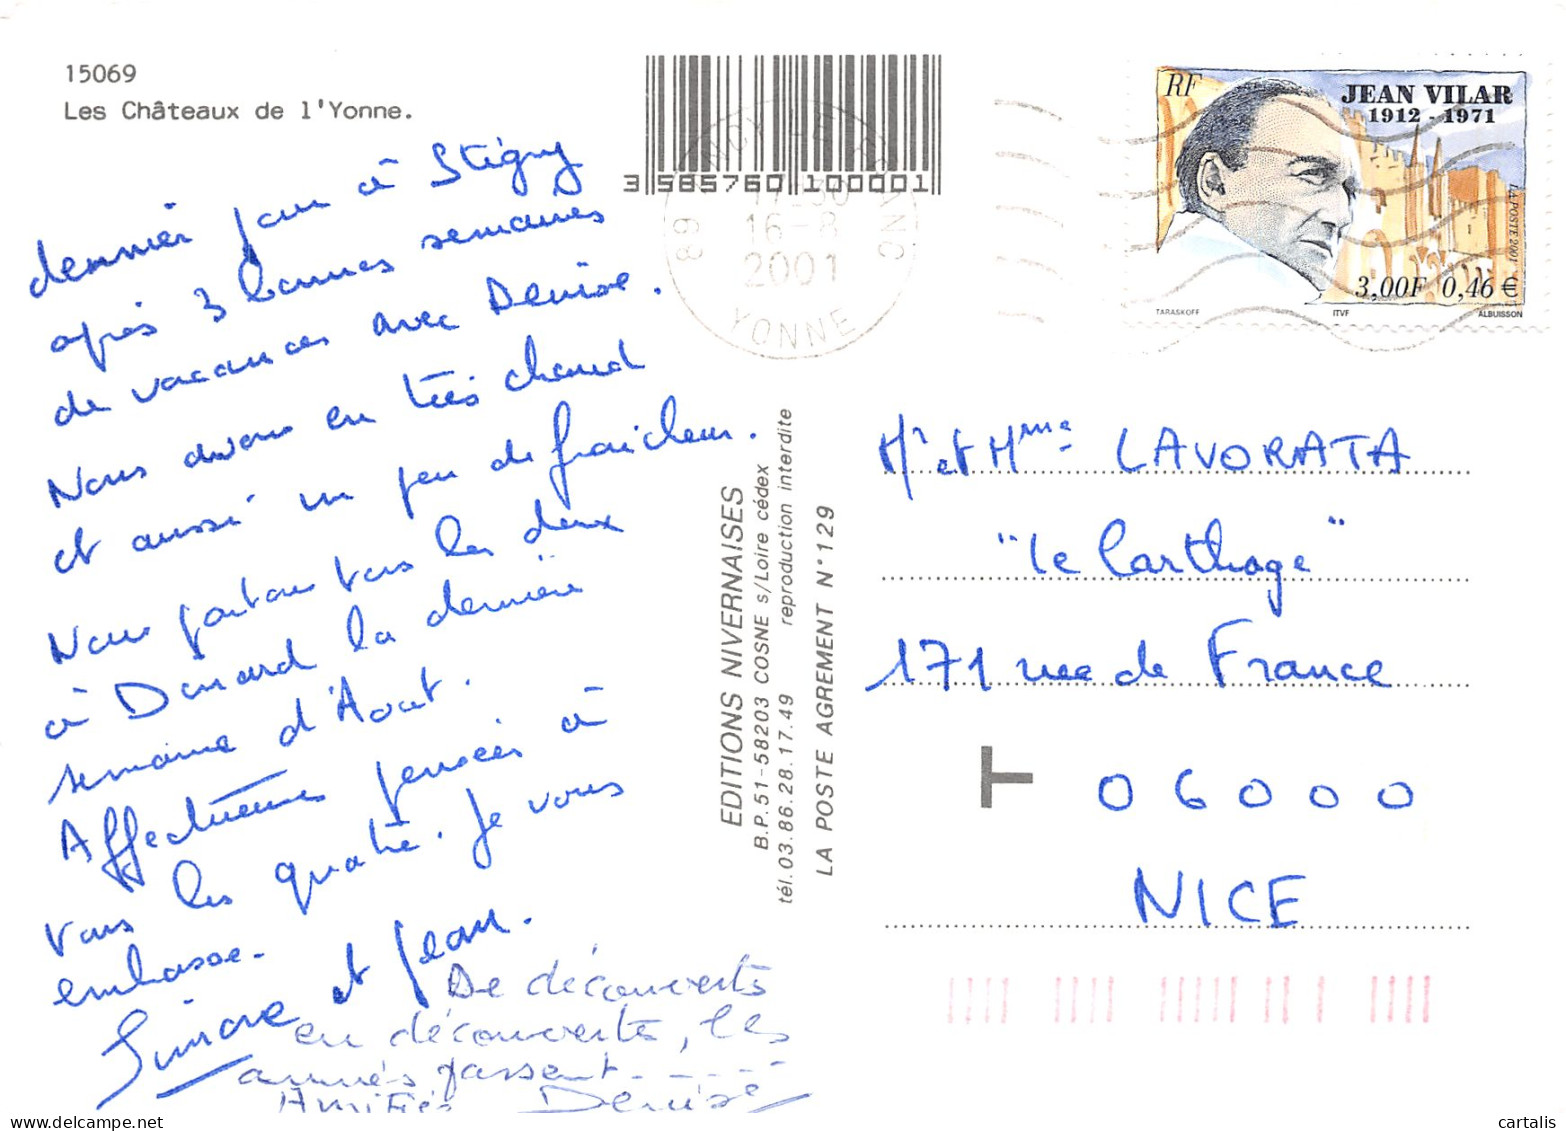 15069
Les Châteaux de l'Yonne.
dernier jour à Stigny
après 3 bonnes semaines
de vacances avec Denise.
Nous avons eu très chaud
et aussi un peu de fraicheur.
Nous partons tous les deux
à Dinard la dernière
semaine d'Aout.
Affectueuses pensées à
vous les quatre. Je vous
embrasse.
Simone et Jean.
De découverts
en découverts, les
années passent-----
Amitiés Denise
3 585760 100001
89
17-30
16-8
2001
YONNE
RF
JEAN VILAR
1912 - 1971
LA POSTE 2001
3,00F 0,46 €
TARASKOFF ITVF ALBUISSON
EDITIONS NIVERNAISES
B.P. 51-58203 COSNE s/Loire cédex
tél. 03.86.28.17.49 reproduction interdite
LA POSTE AGREMENT N°129
Mr et Mme LAVORATA
"le Carthage"
171 rue de France
T 06000
NICE
cartalis